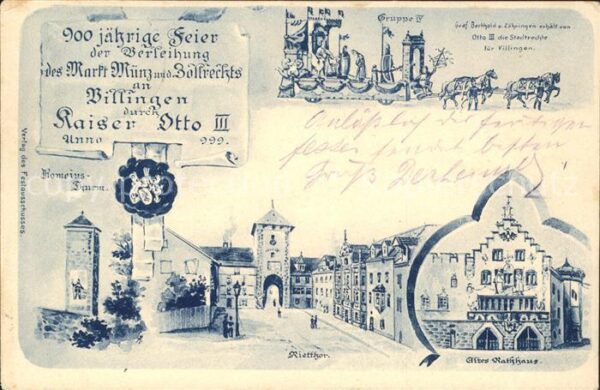 900 jährige Feier
der Verleihung
des Markt Münz und Zollrechts
an
Villingen
durch
Kaiser Otto III
Anno 999.
Gruppe IV
Graf Berthold v. Zähringen erhält von
Otto III die Stadtrechte
für Villingen.
Anläßlich des heutigen
Festes sendet besten
Gruß
Romeius-
Thurm.
Verlag des Festausschusses.
Rietthor.
Altes Rathhaus.